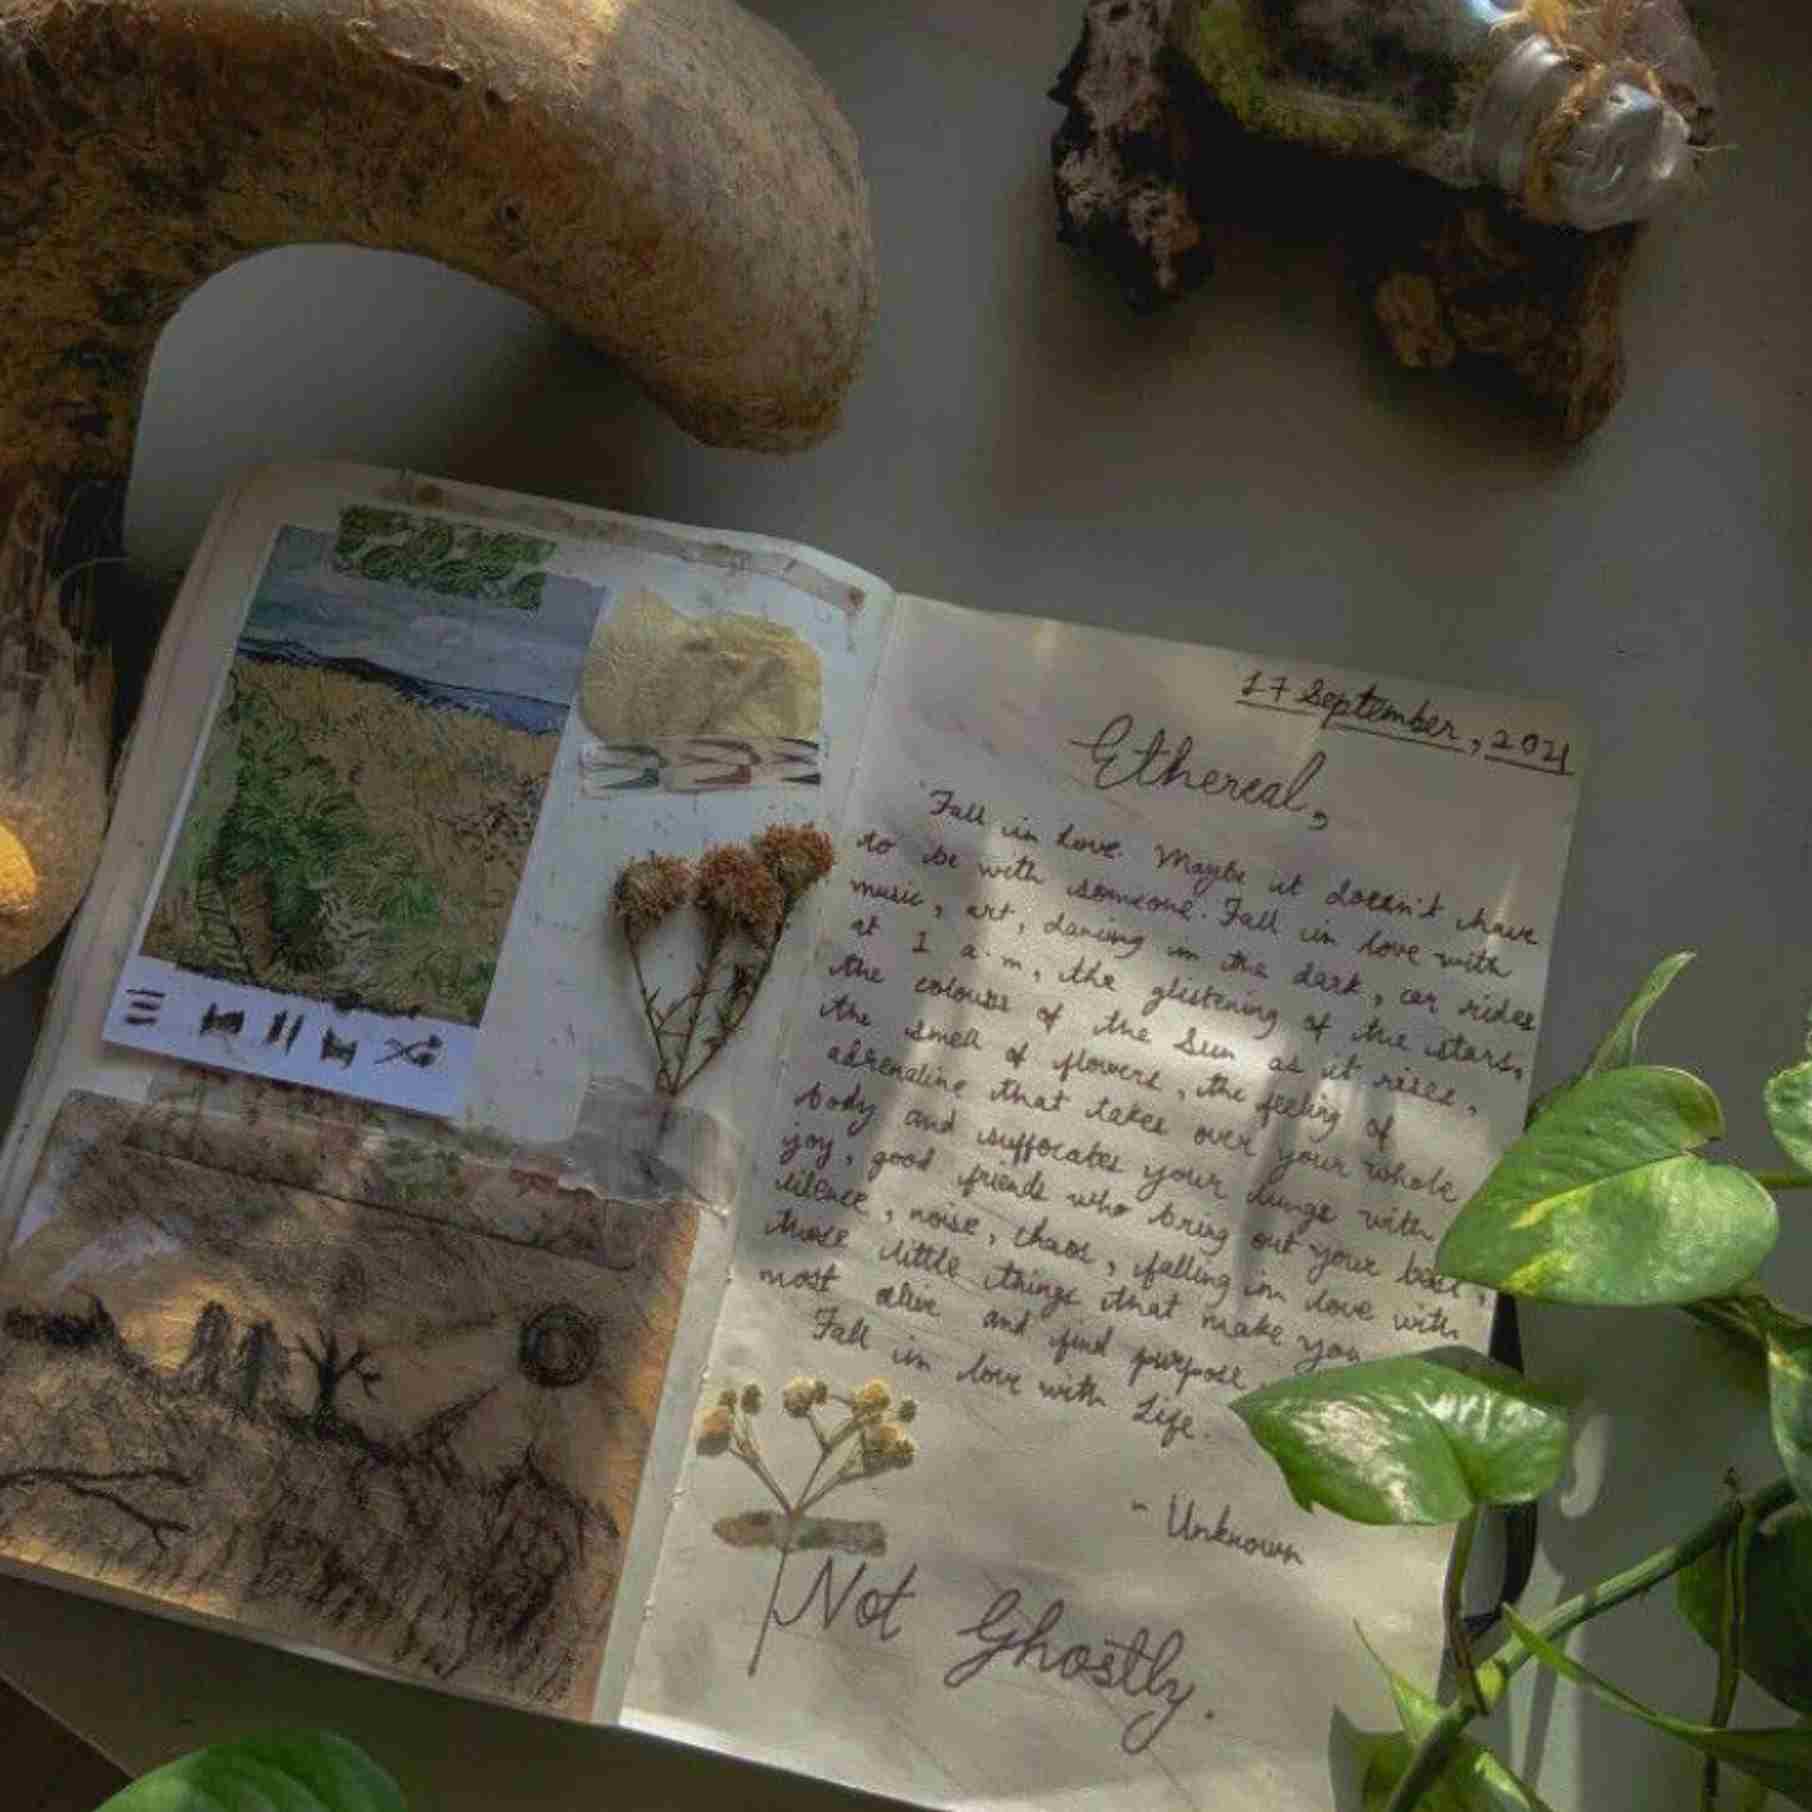 17 September, 2021
Ethereal,
"Fall in Love. Maybe it doesn't have
to be with someone. Fall in love with
music, art, dancing in the dark, car rides
at 1 a.m, the glistening of the stars,
the colours of the Sun as it rises,
the smell of flowers, the feeling of
adrenaline that takes over your whole
body and suffocates your lungs with
joy, good friends who bring out your best,
silence, noise, chaos, falling in love with
those little things that make you
most alive and find purpose
Fall in love with Life.
- Unknown
Not Ghostly.